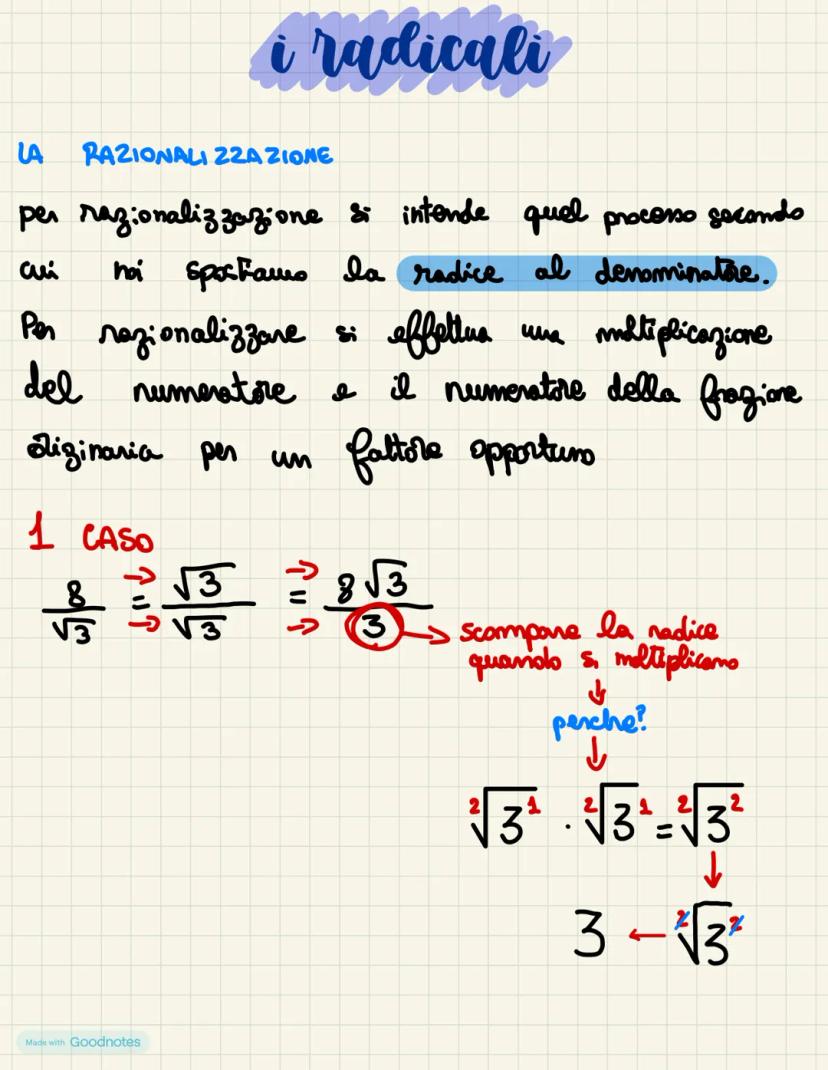 i radicali
LA RAZIONALIZZAZIONE
per razionalizzazione si intende quel processo secondo
cui noi spostiamo la radice al denominatore.
Per razionalizzare si effettua una moltiplicazione
del numeratore e il numeratore della frazione
originaria per un fattore opportuno
1 CASO
8/√3 → = → √3/√3 → = → 8√3/3 → scompare la radice
quando si moltiplicano
↓
perche?
↓
²√3¹ · ²√3¹ = ²√3²
↓
3 ← ²√3²
Made with Goodnotes